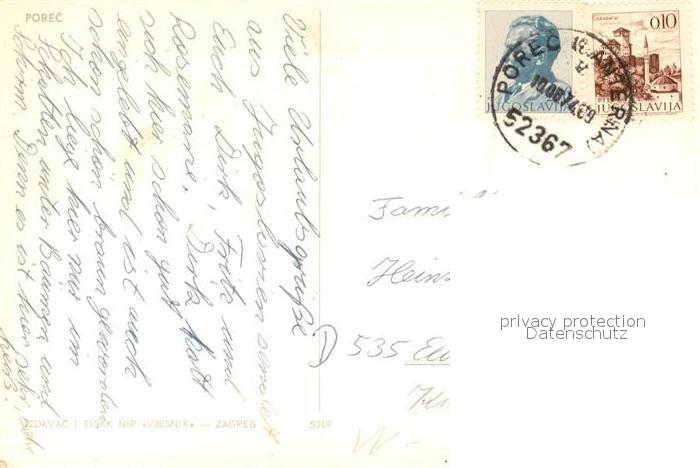 POREČ
Viele Urlaubsgrüße
aus Jugoslavien senden
Euch Dirk, Fritz und
Rosemarie. Dirk hat
sich hier schon gut
eingelebt und ist auch
schon schön braun geworden.
Ich liege hier nur im
Schatten unter Bäumen und
Schirm. Denn es ist hier sehr
heiß.
IZDAVAČ I TISAK NIP »VJESNIK« — ZAGREB 5319
JUGOSLAVIJA
0,10
JUGOSLAVIJA
POREČ
52367
Fami
Hein
535
privacy protection
Datenschutz
W-